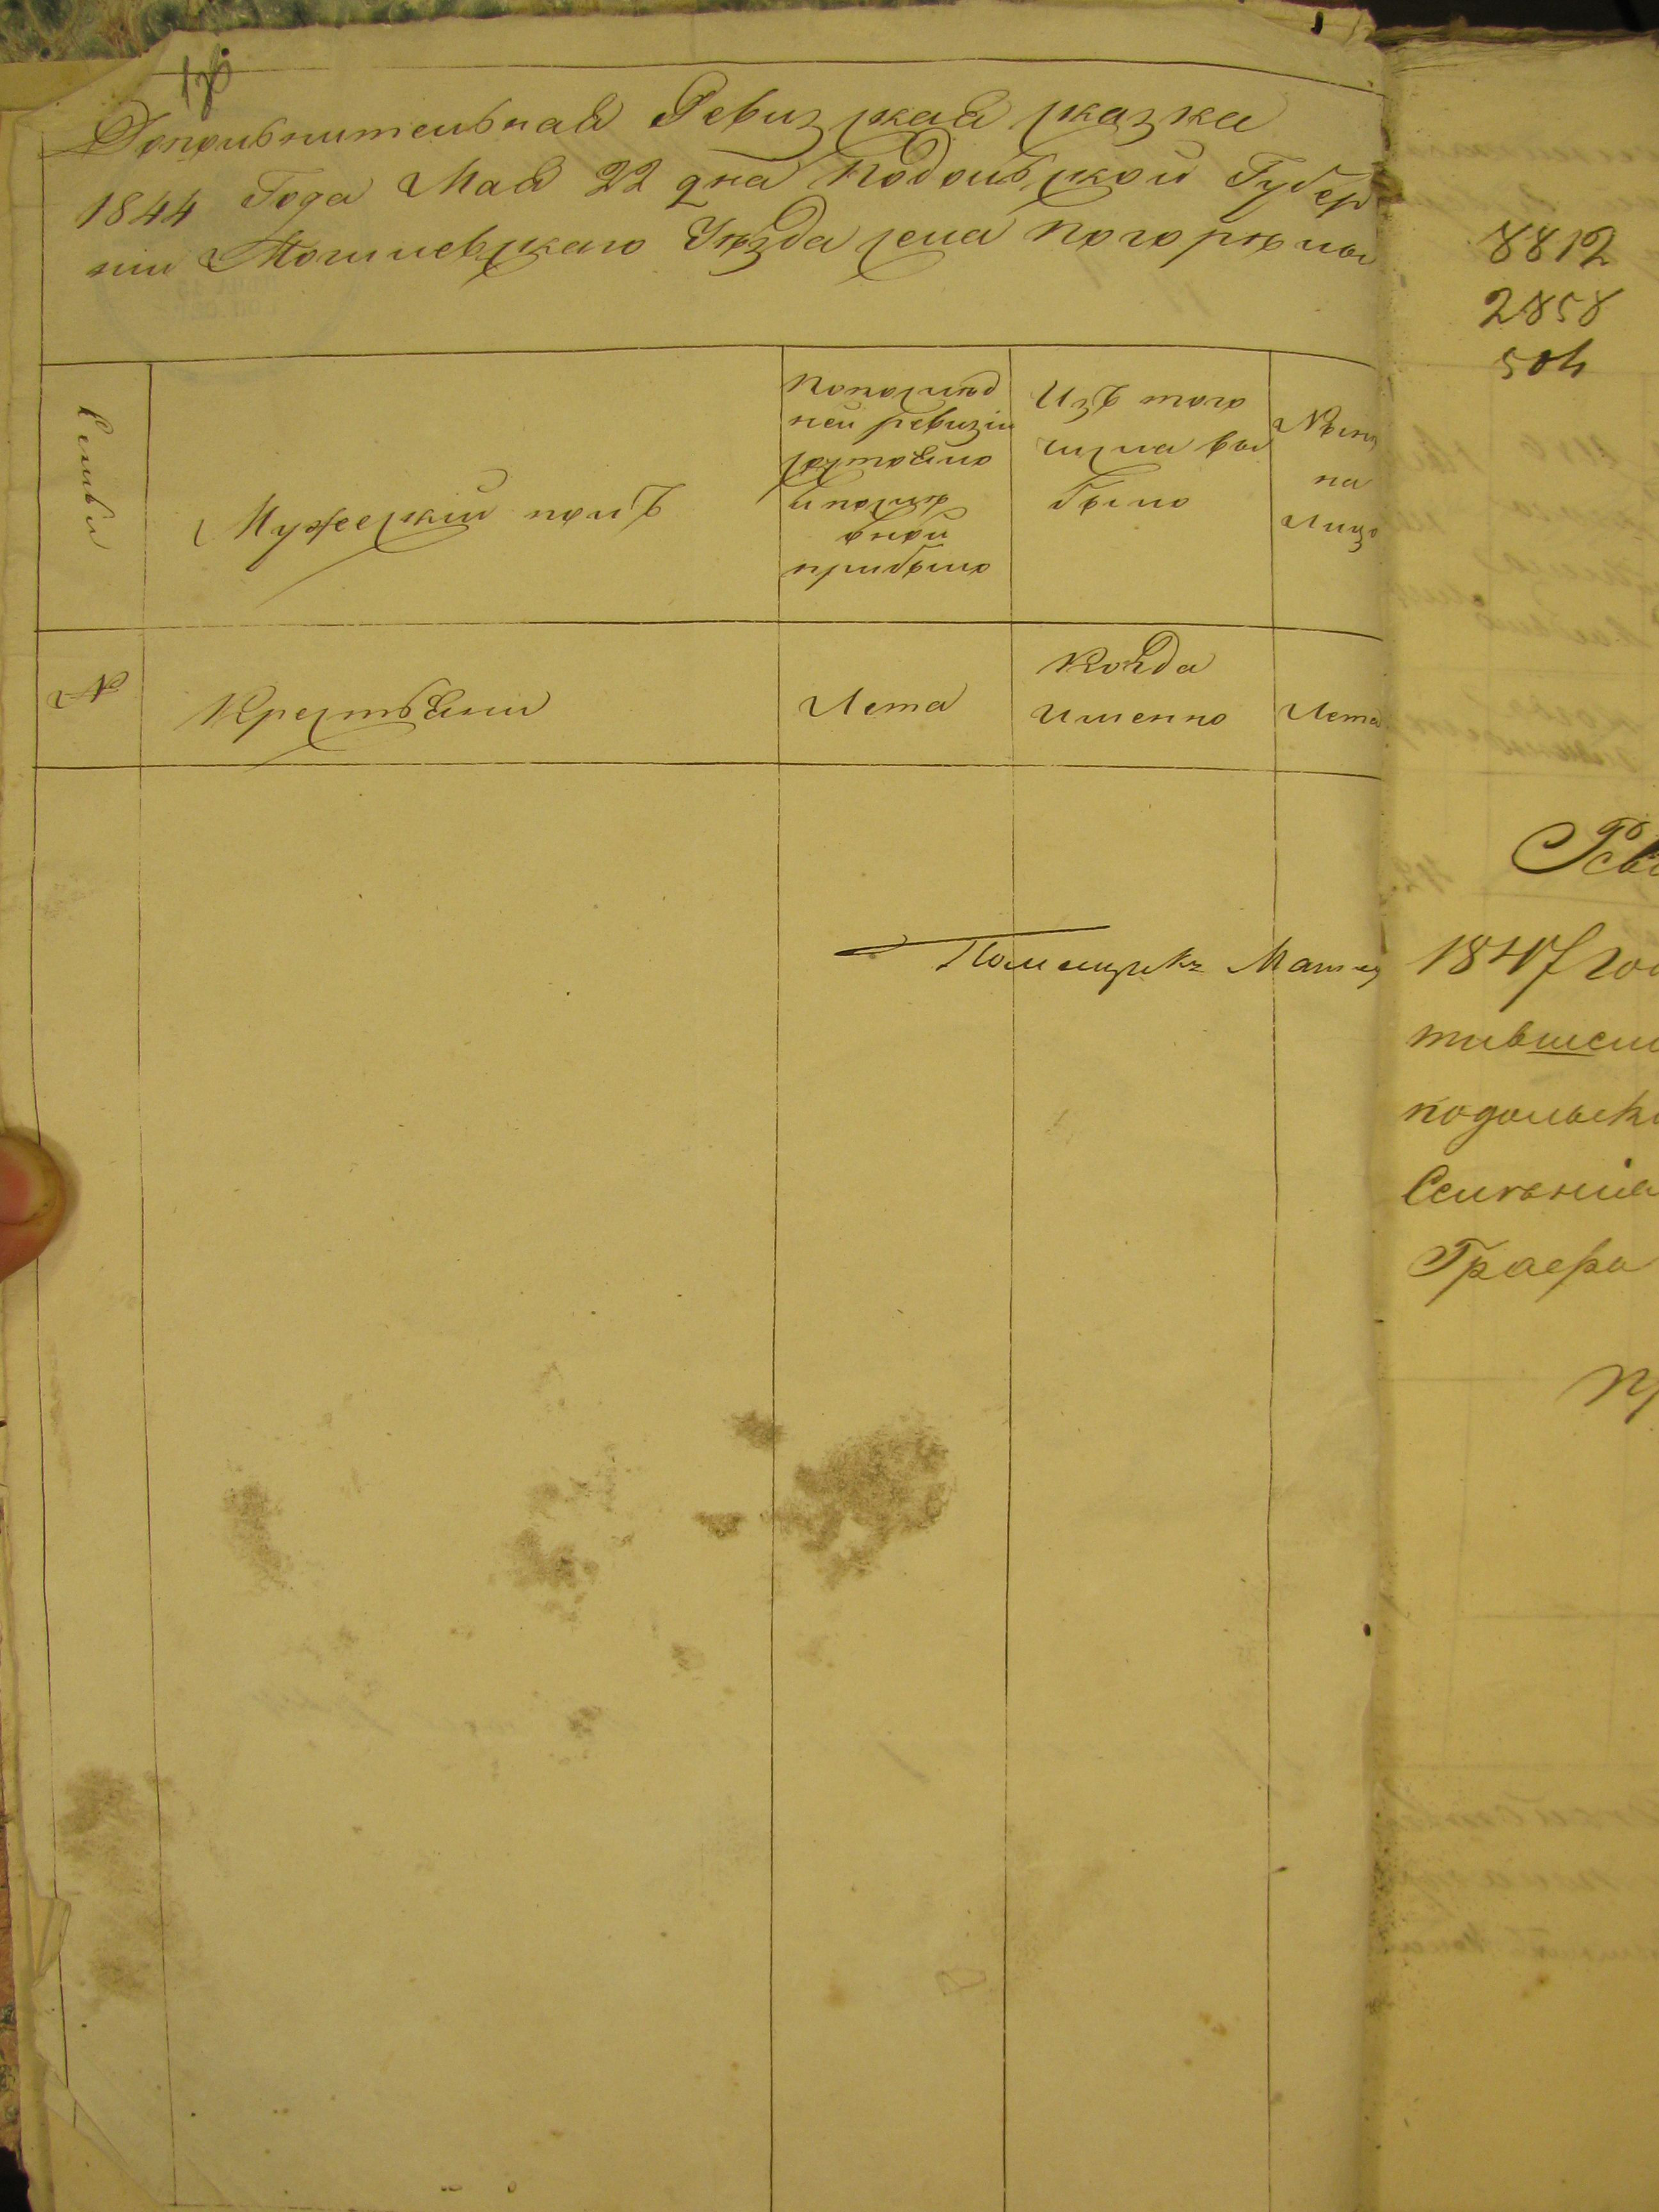 Дополнительная Ревизская сказка
1844 Года Мая 22 дня Подольской Губер
нии Могилевскаго Уезда села Погорелы
Семьи
Мужеский полъ
Попослед
ней ревизіи
состояло
и после
оной
прибыло
Изъ того
числа вы
было
Ныне
на
лицо
№
Крестьяни
Лета
Когда
Именно
Лета
Помещикъ
8812
2858
504
1847 го
тивше
подольск
Селения
Графа